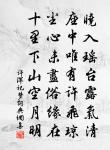 曉入瑤台露氣清
座中唯有許飛瓊
塵心未盡俗緣在
十里下山空月明
許渾記夢詞典網書